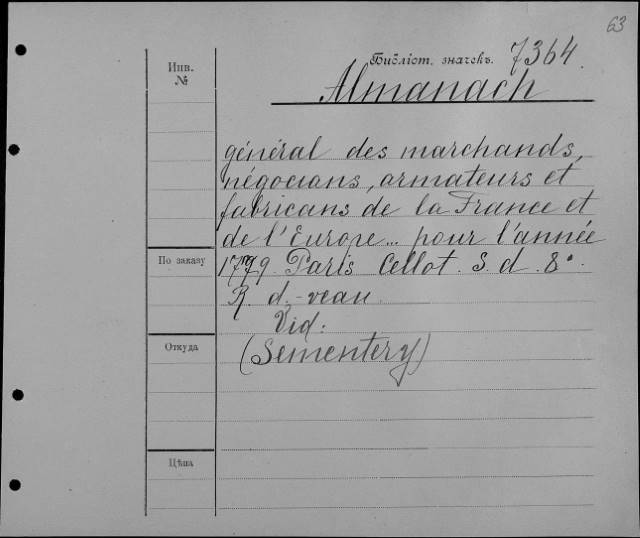 63
Инв.
№
Библіот. значекъ. 7364.
Almanach
général des marchands,
négocians, armateurs et
fabricans de la France et
de l'Europe... pour l'année
1779. Paris Cellot. S. d. 8°.
По заказу
R. d.-veau.
Vid:
Откуда
(Sementery)
Цѣна